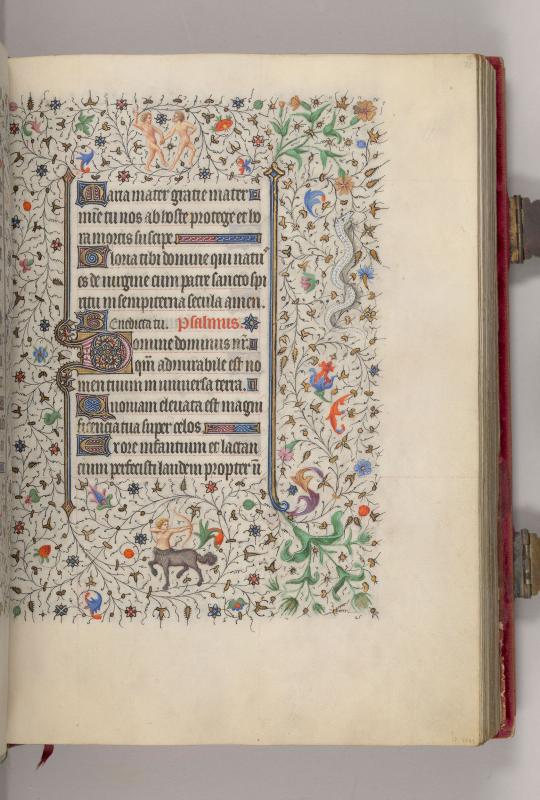 Maria mater gratie mater
mīe tu nos ab hoste protege et ho
ra mortis suscipe
Gloria tibi domine qui natus
es de virgine cum patre sancto spi
ritu in sempiterna secula amen.
Benedicta tu. Psalmus.
Domine dominus nr̄
qm̄ admirabile est no
men tuum in universa terra.
Quoniam elevata est magni
ficencia tua super celos
Ex ore infantium et lactan
cium perfecisti laudem propter ū